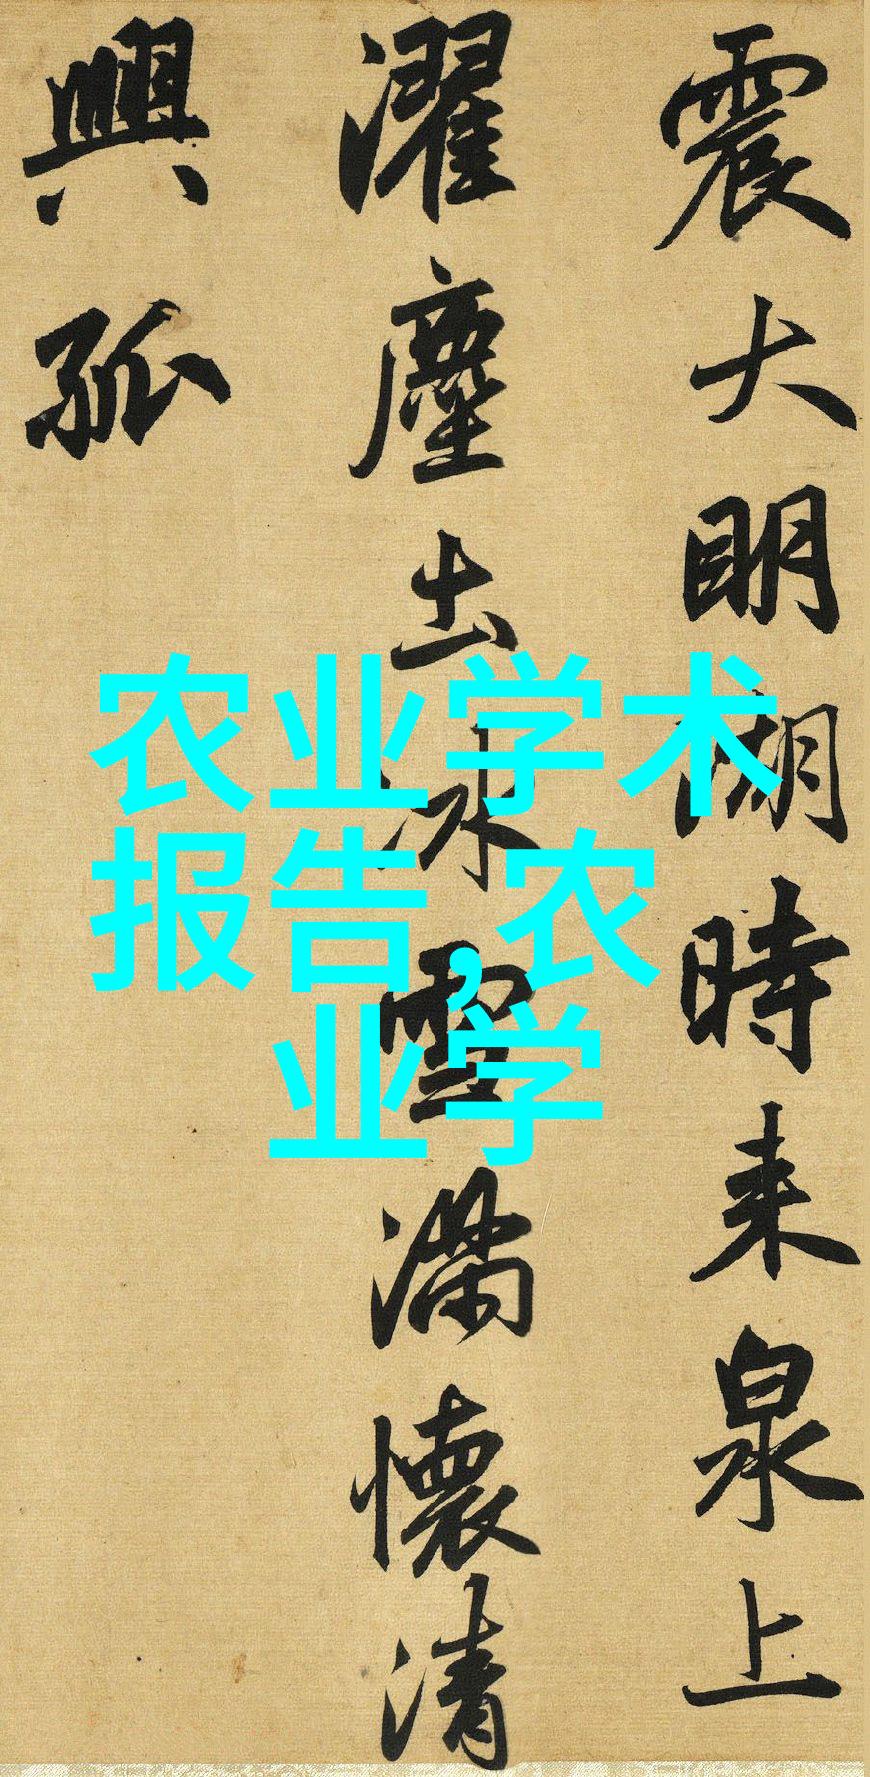 震大明湖時来泉上
濯塵出冰雪滿懷清
興孤
农业学术
报告,农
业学